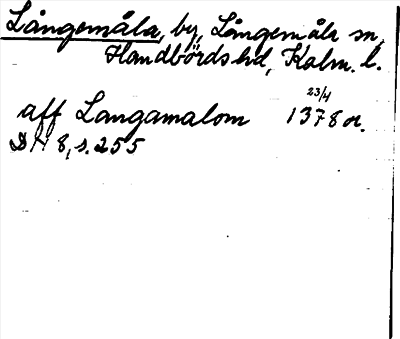 Långemåla, by, Långemåla sn,
Handbörds hd, Kalm. l.
23/4
aff Langamalom 1378 or.
DN 8, s. 255